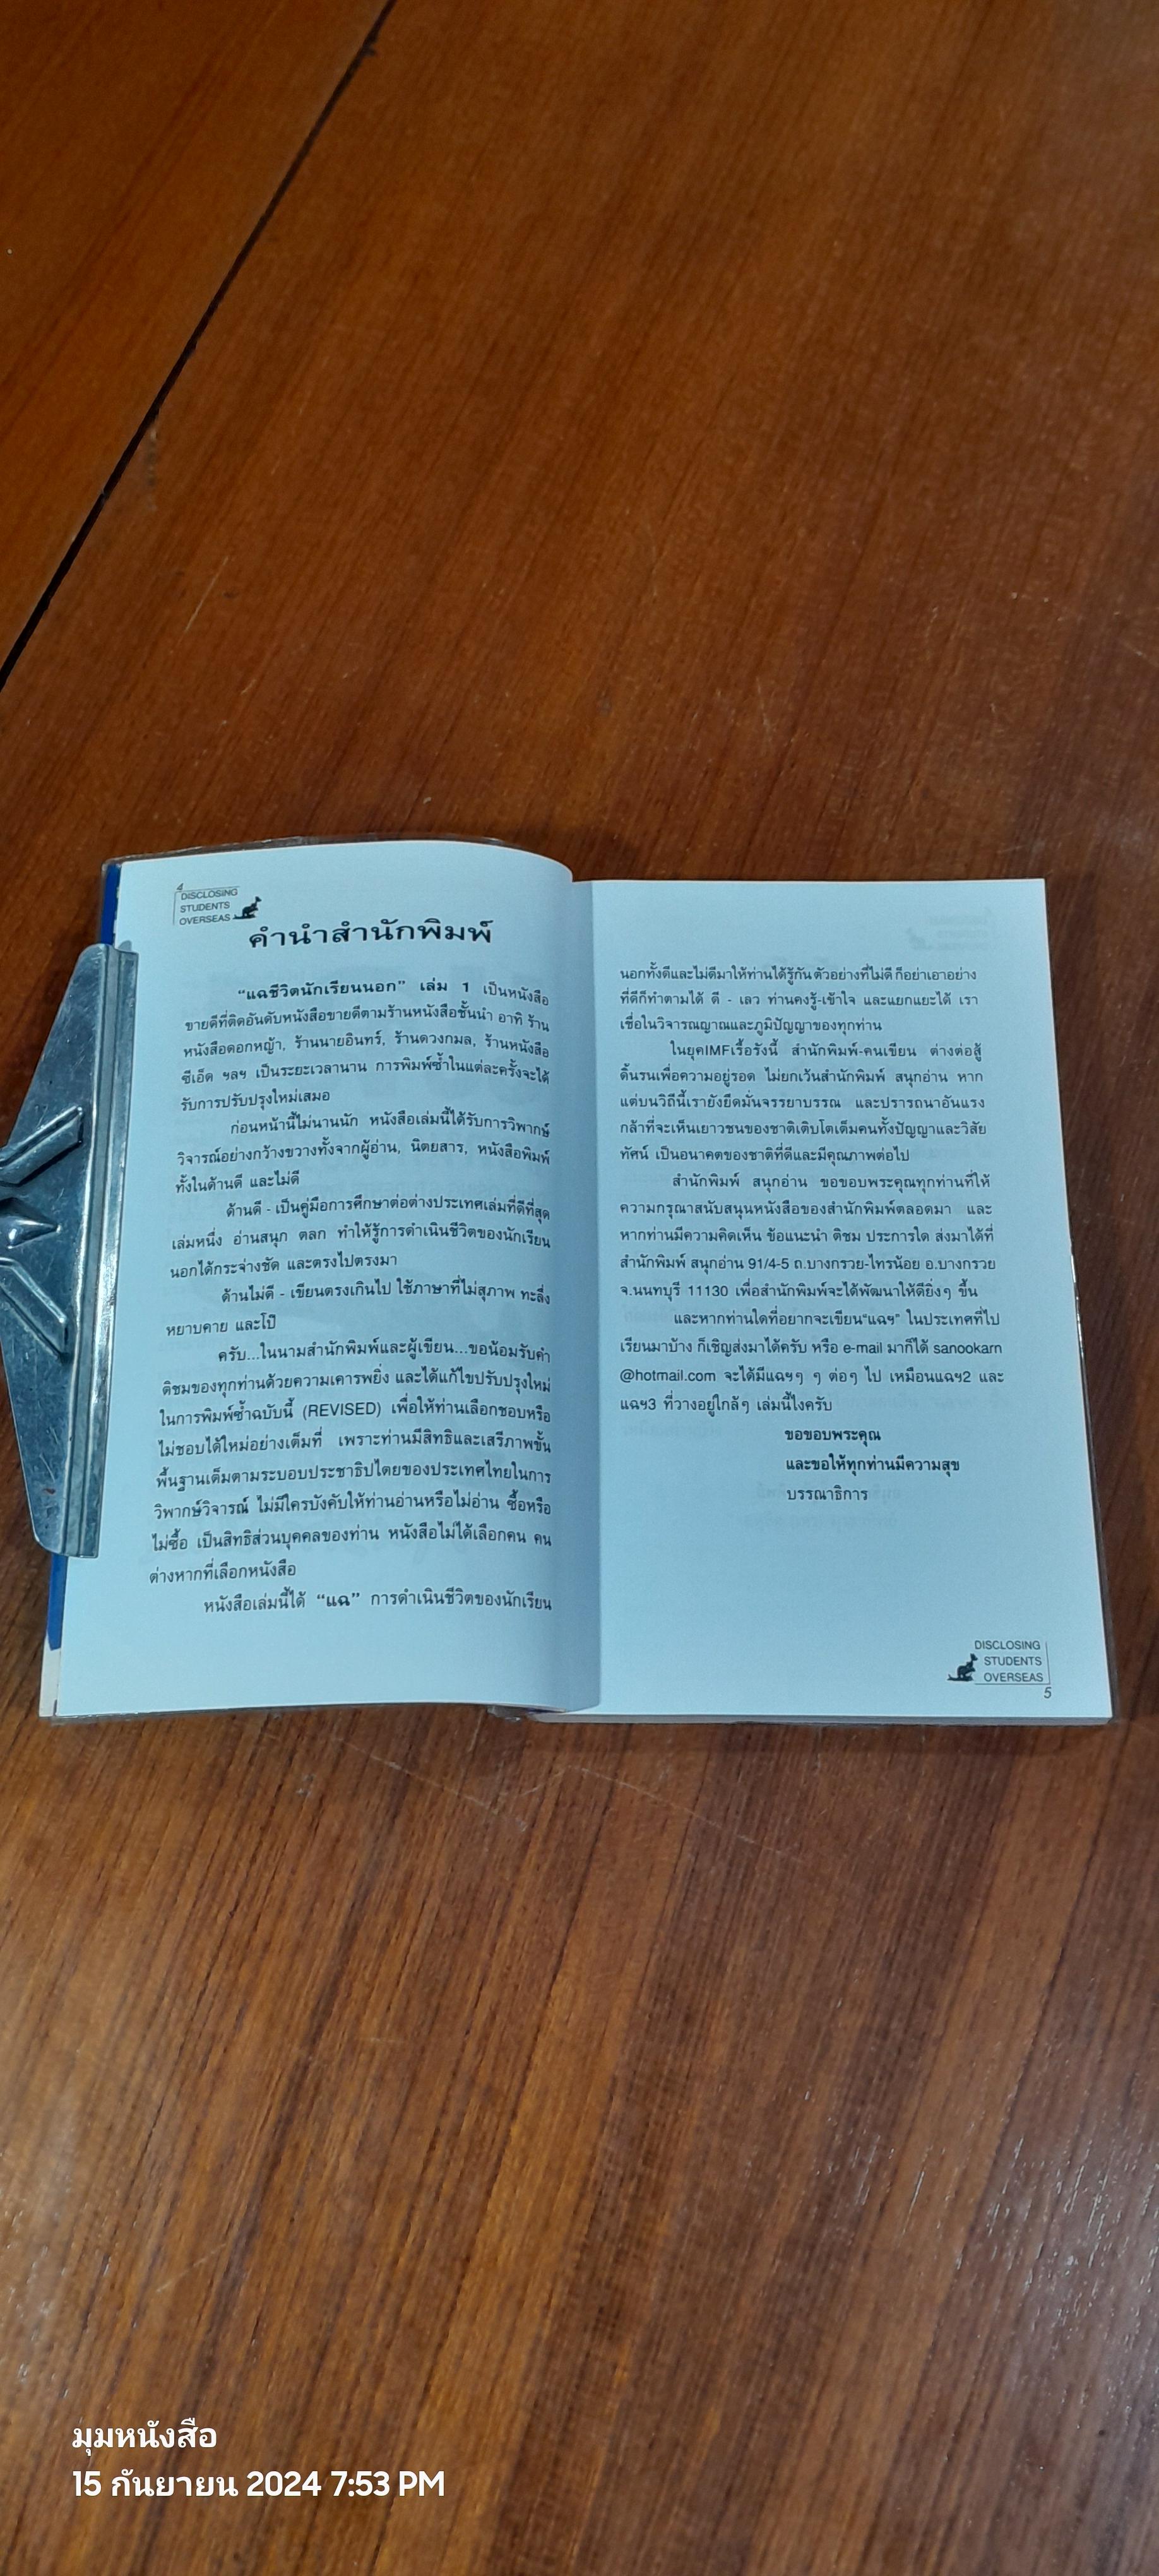 4
DISCLOSING
STUDENTS
OVERSEAS
คำนำสำนักพิมพ์
“แฉชีวิตนักเรียนนอก” เล่ม 1 เป็นหนังสือ
ขายดีที่ติดอันดับหนังสือขายดีตามร้านหนังสือชั้นนำ อาทิ ร้าน
หนังสือดอกหญ้า, ร้านนายอินทร์, ร้านดวงกมล, ร้านหนังสือ
ซีเอ็ด ฯลฯ เป็นระยะเวลานาน การพิมพ์ซ้ำในแต่ละครั้งจะได้
รับการปรับปรุงใหม่เสมอ
ก่อนหน้านี้ไม่นานนัก หนังสือเล่มนี้ได้รับการวิพากษ์
วิจารณ์อย่างกว้างขวางทั้งจากผู้อ่าน, นิตยสาร, หนังสือพิมพ์
ทั้งในด้านดี และไม่ดี
ด้านดี - เป็นคู่มือการศึกษาต่อต่างประเทศเล่มที่ดีที่สุด
เล่มหนึ่ง อ่านสนุก ตลก ทำให้รู้การดำเนินชีวิตของนักเรียน
นอกได้กระจ่างชัด และตรงไปตรงมา
ด้านไม่ดี - เขียนตรงเกินไป ใช้ภาษาที่ไม่สุภาพ ทะลึ่ง
หยาบคาย และโป๊
ครับ...ในนามสำนักพิมพ์และผู้เขียน...ขอน้อมรับคำ
ติชมของทุกท่านด้วยความเคารพยิ่ง และได้แก้ไขปรับปรุงใหม่
ในการพิมพ์ซ้ำฉบับนี้ (REVISED) เพื่อให้ท่านเลือกชอบหรือ
ไม่ชอบได้ใหม่อย่างเต็มที่ เพราะท่านมีสิทธิและเสรีภาพขั้น
พื้นฐานเต็มตามระบอบประชาธิปไตยของประเทศไทยในการ
วิพากษ์วิจารณ์ ไม่มีใครบังคับให้ท่านอ่านหรือไม่อ่าน ซื้อหรือ
ไม่ซื้อ เป็นสิทธิส่วนบุคคลของท่าน หนังสือไม่ได้เลือกคน คน
ต่างหากที่เลือกหนังสือ
หนังสือเล่มนี้ได้ “แฉ” การดำเนินชีวิตของนักเรียน
นอกทั้งดีและไม่ดีมาให้ท่านได้รู้กัน ตัวอย่างที่ไม่ดี ก็อย่าเอาอย่าง
ที่ดีก็ทำตามได้ ดี - เลว ท่านคงรู้-เข้าใจ และแยกแยะได้ เรา
เชื่อในวิจารณญาณและภูมิปัญญาของทุกท่าน
ในยุคIMFเรื้อรังนี้ สำนักพิมพ์-คนเขียน ต่างต่อสู้
ดิ้นรนเพื่อความอยู่รอด ไม่ยกเว้นสำนักพิมพ์ สนุกอ่าน หาก
แต่บนวิถีนี้เรายังยึดมั่นจรรยาบรรณ และปรารถนาอันแรง
กล้าที่จะเห็นเยาวชนของชาติเติบโตเต็มคนทั้งปัญญาและวิสัย
ทัศน์ เป็นอนาคตของชาติที่ดีและมีคุณภาพต่อไป
สำนักพิมพ์ สนุกอ่าน ขอขอบพระคุณทุกท่านที่ให้
ความกรุณาสนับสนุนหนังสือของสำนักพิมพ์ตลอดมา และ
หากท่านมีความคิดเห็น ข้อแนะนำ ติชม ประการใด ส่งมาได้ที่
สำนักพิมพ์ สนุกอ่าน 91/4-5 ถ.บางกรวย-ไทรน้อย อ.บางกรวย
จ.นนทบุรี 11130 เพื่อสำนักพิมพ์จะได้พัฒนาให้ดียิ่งๆ ขึ้น
และหากท่านใดที่อยากจะเขียน“แฉฯ” ในประเทศที่ไป
เรียนมาบ้าง ก็เชิญส่งมาได้ครับ หรือ e-mail มาก็ได้ sanookarn
@hotmail.com จะได้มีแฉฯๆ ๆ ต่อๆ ไป เหมือนแฉฯ2 และ
แฉฯ3 ที่วางอยู่ใกล้ๆ เล่มนี้ไงครับ
ขอขอบพระคุณ
และขอให้ทุกท่านมีความสุข
บรรณาธิการ
DISCLOSING
STUDENTS
OVERSEAS
5
มุมหนังสือ
15 กันยายน 2024 7:53 PM